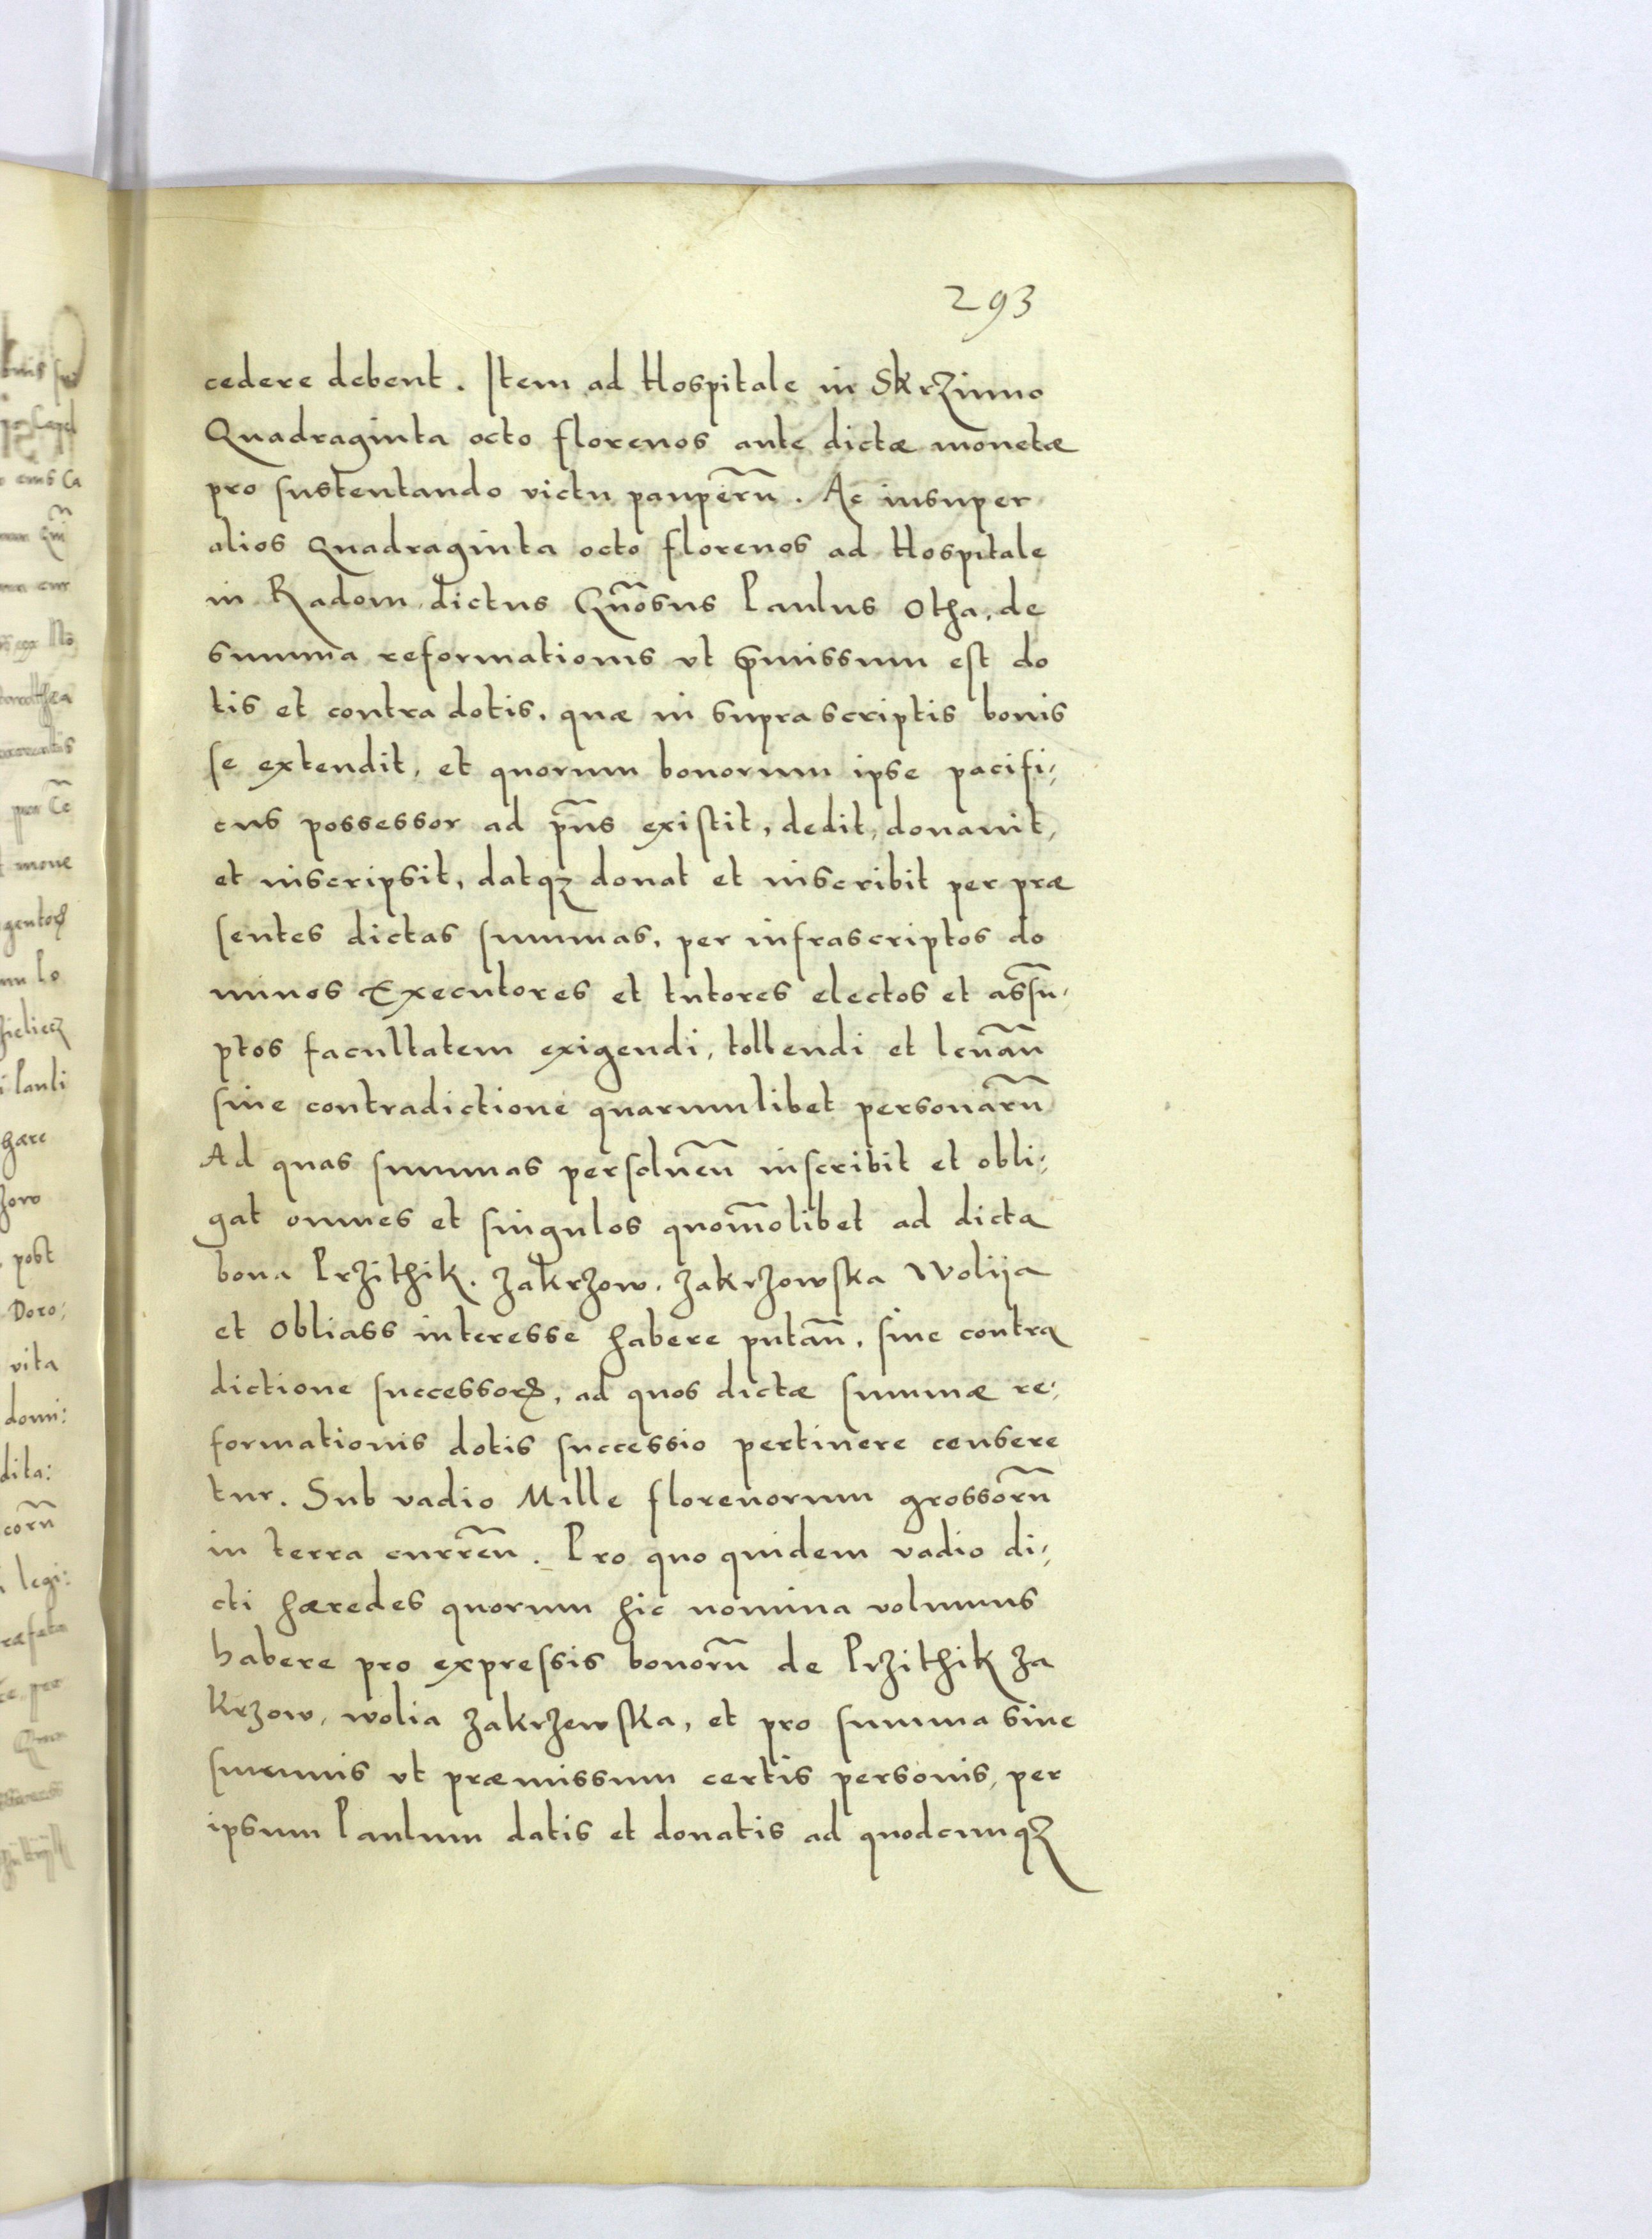 293
cedere debent. Item ad Hospitale in Skrzinno
Quadraginta octo florenos ante dictæ monetæ
pro sustentando victu pauper̃u. Ac insuper
alios Quadraginta octo florenos ad Hospitale
in Radom dictus Gñosus Paulus Otha, de
summa reformationis vt p̃missum est do
tis et contra dotis, quæ in suprascriptis bonis
se extendit, et quorum bonorum ipse pacifi,
cus possessor ad p̃ns existit, dedit, donauit,
et inscripsit, datqȝ donat et inscribit per præ
sentes dictas summas, per infrascriptos do
minos Executores et tutores electos et assũ,
ptos facultatem exigendi, tollendi et leuañ
sine contradictione quarumlibet personar̃u
Ad quas summas persoluẽn inscribit et obli,
gat omnes et singulos quom̃olibet ad dicta
bona Przithik. Zakrzow. Zakrzowska Wolija
et Obliass interesse habere putañ, sine contra
dictione successorꝝ, ad quos dictæ summæ re,
formationis dotis successio pertinere censere
tur. Sub vadio Mille florenorum grossor̃u
in terra currẽn. Pro quo quidem vadio di,
cti hæredes quorum hic nomina volumus
habere pro expressis bonor̃u de Przithik Za
krzow, wolia Zakrzewska, et pro summa siue
summis vt præmissum certis personis, per
ipsum Paulum datis et donatis ad quodcumqȝ